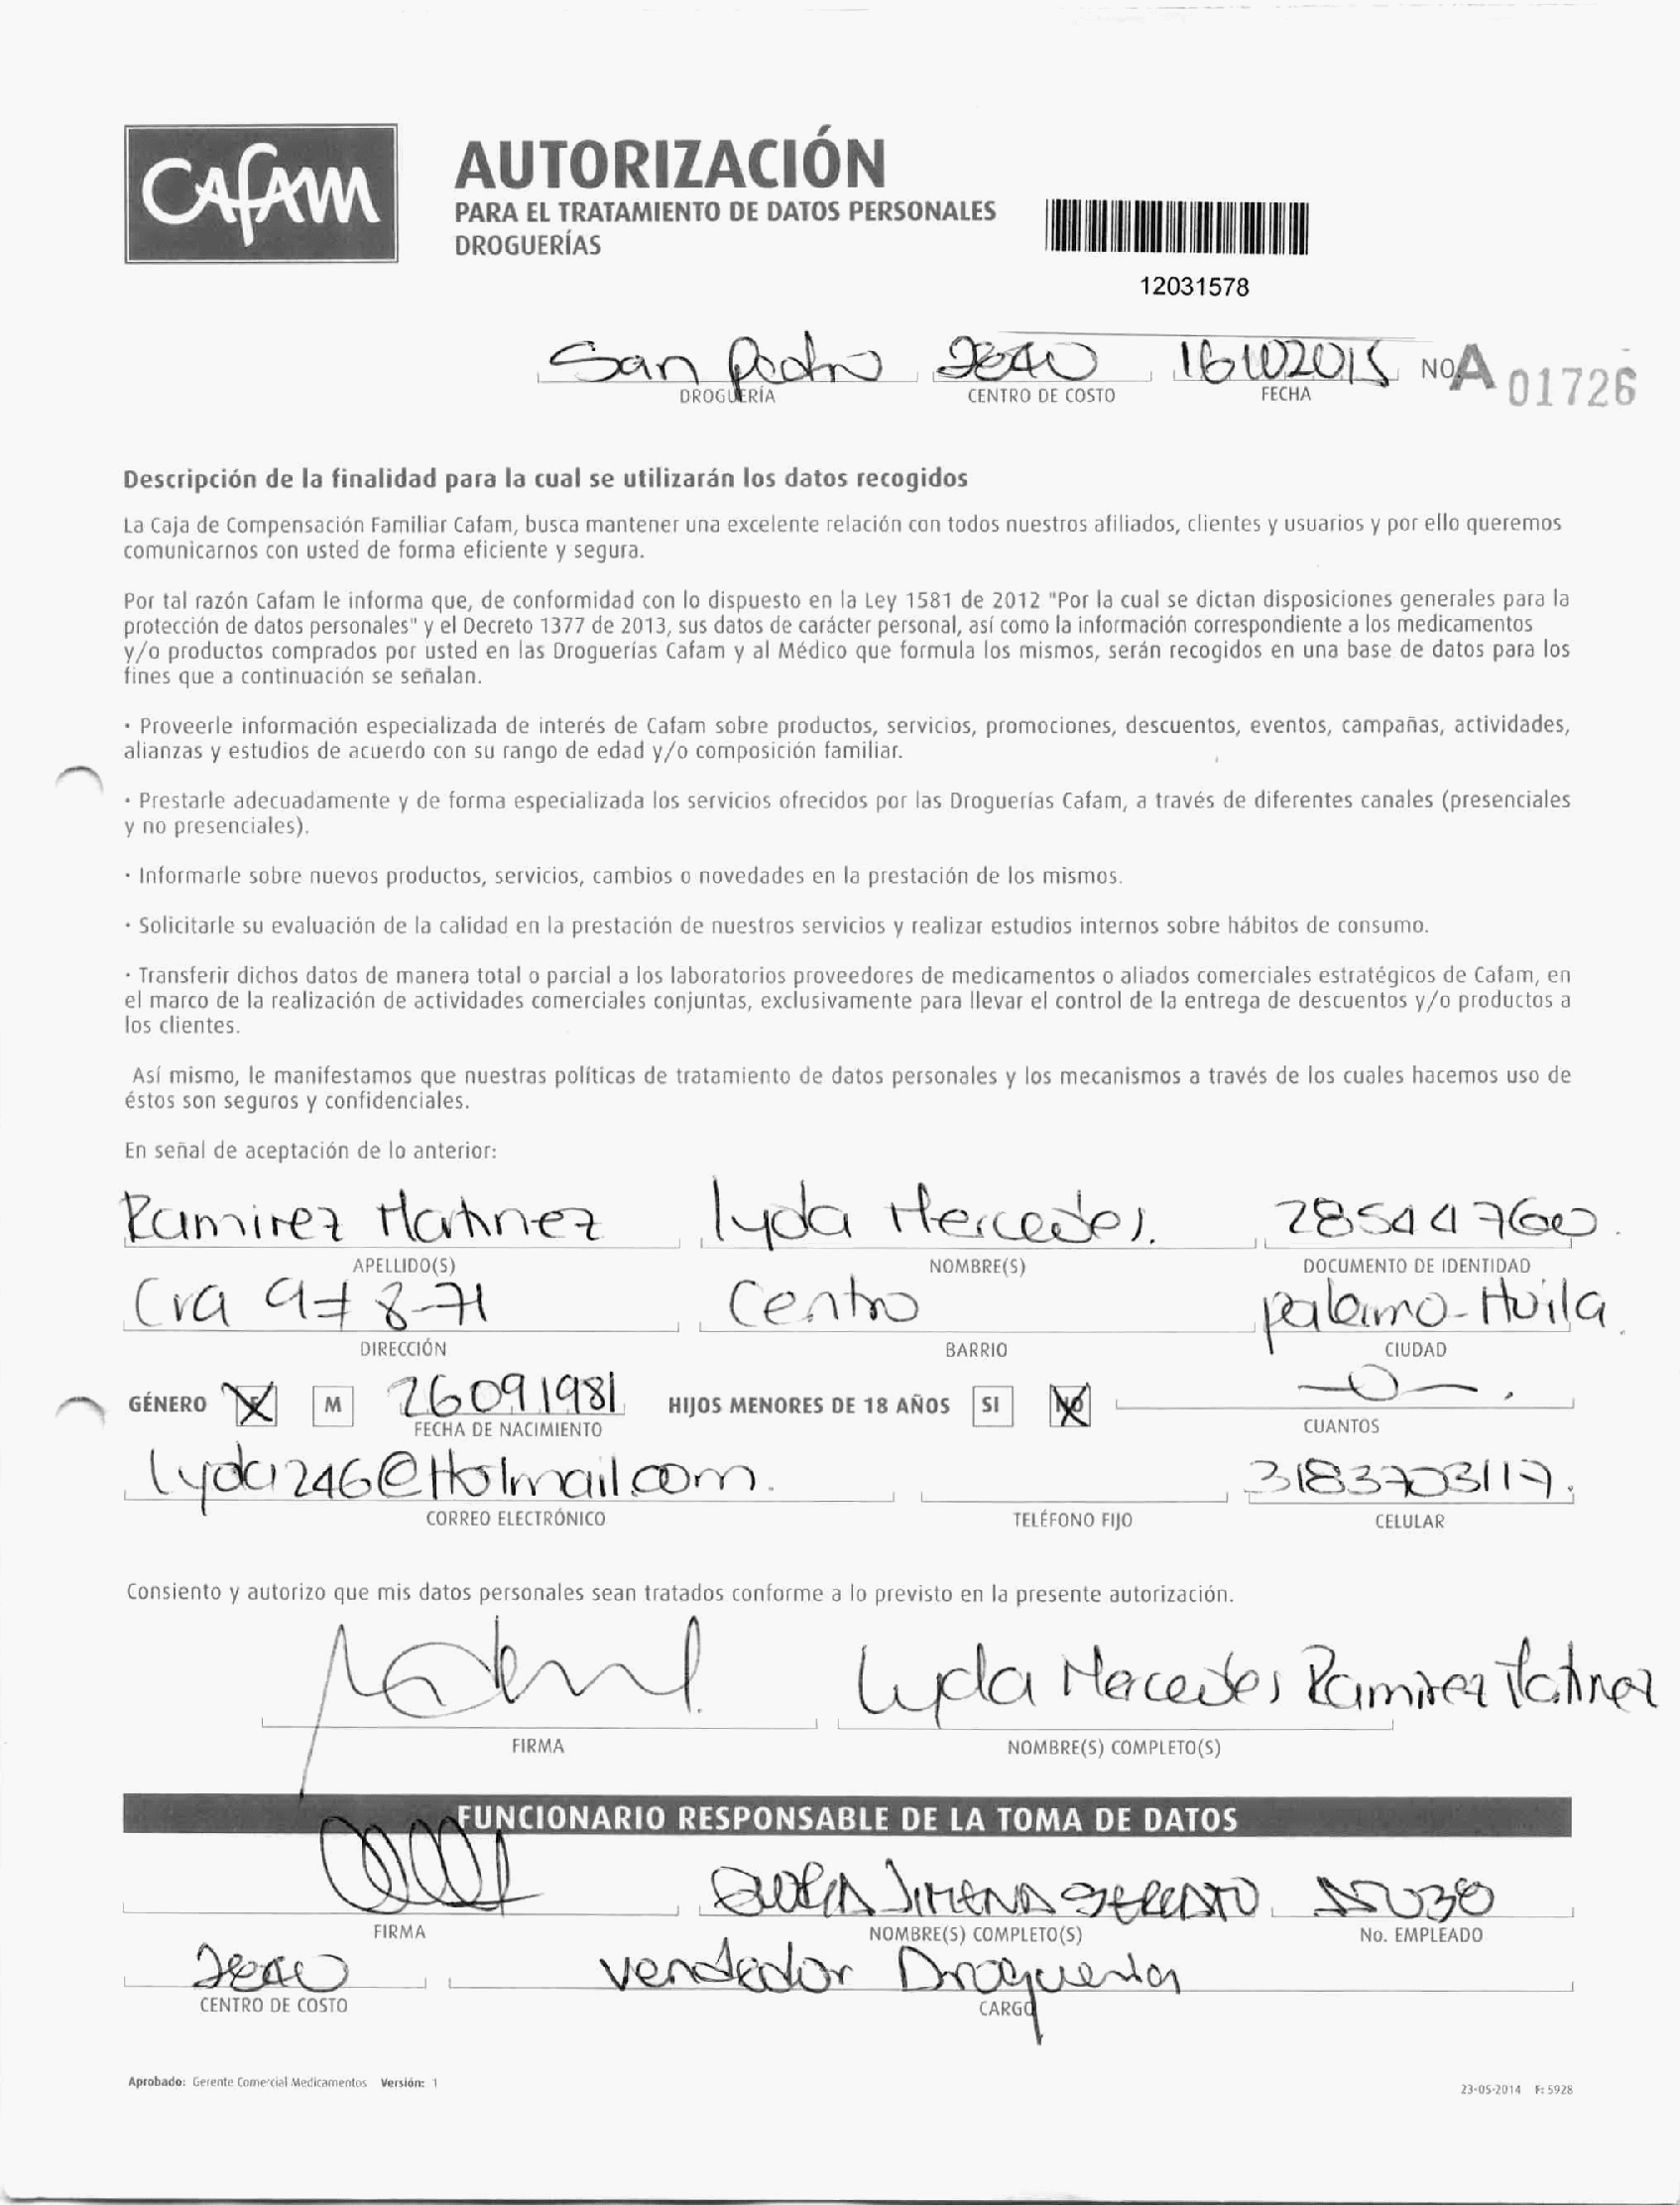 CAFAM
AUTORIZACIÓN
PARA EL TRATAMIENTO DE DATOS PERSONALES
DROGUERÍAS
12031578
San Pedro 16102015 NO. A 01726
DROGUERÍA CENTRO DE COSTO FECHA
Descripción de la finalidad para la cual se utilizarán los datos recogidos
La Caja de Compensación Familiar Cafam, busca mantener una excelente relación con todos nuestros afiliados, clientes y usuarios y por ello queremos
comunicarnos con usted de forma eficiente y segura.
Por tal razón Cafam le informa que, de conformidad con lo dispuesto en la Ley 1581 de 2012 "Por la cual se dictan disposiciones generales para la
protección de datos personales" y el Decreto 1377 de 2013, sus datos de carácter personal, así como la información correspondiente a los medicamentos
y/o productos comprados por usted en las Droguerías Cafam y al Médico que formula los mismos, serán recogidos en una base de datos para los
fines que a continuación se señalan.
· Proveerle información especializada de interés de Cafam sobre productos, servicios, promociones, descuentos, eventos, campañas, actividades,
alianzas y estudios de acuerdo con su rango de edad y/o composición familiar.
· Prestarle adecuadamente y de forma especializada los servicios ofrecidos por las Droguerías Cafam, a través de diferentes canales (presenciales
y no presenciales).
· Informarle sobre nuevos productos, servicios, cambios o novedades en la prestación de los mismos.
· Solicitarle su evaluación de la calidad en la prestación de nuestros servicios y realizar estudios internos sobre hábitos de consumo.
· Transferir dichos datos de manera total o parcial a los laboratorios proveedores de medicamentos o aliados comerciales estratégicos de Cafam, en
el marco de la realización de actividades comerciales conjuntas, exclusivamente para llevar el control de la entrega de descuentos y/o productos a
los clientes.
Así mismo, le manifestamos que nuestras políticas de tratamiento de datos personales y los mecanismos a través de los cuales hacemos uso de
éstos son seguros y confidenciales.
En señal de aceptación de lo anterior:
Ramirez Martinez Lyda Mercedes. 28544760.
APELLIDO(S) NOMBRE(S) DOCUMENTO DE IDENTIDAD
Cra 9 # 8-71 Centro palermo-Huila.
DIRECCIÓN BARRIO CIUDAD
GÉNERO F M 26091981 HIJOS MENORES DE 18 AÑOS SI NO -0-
FECHA DE NACIMIENTO CUANTOS
lyda246@Hotmail.com. 3183703117.
CORREO ELECTRÓNICO TELÉFONO FIJO CELULAR
Consiento y autorizo que mis datos personales sean tratados conforme a lo previsto en la presente autorización.
Lyda Mercedes Ramirez Martinez
FIRMA NOMBRE(S) COMPLETO(S)
FUNCIONARIO RESPONSABLE DE LA TOMA DE DATOS
JIMENA
FIRMA NOMBRE(S) COMPLETO(S) No. EMPLEADO
vendedor Droguerias
CENTRO DE COSTO CARGO
Aprobado: Gerente Comercial Medicamentos Versión: 1 23-05-2014 F: 5928